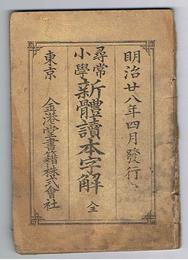 明治廿八年四月發行
尋常小學新體讀本字解 全
東京 金港堂書籍株式會社